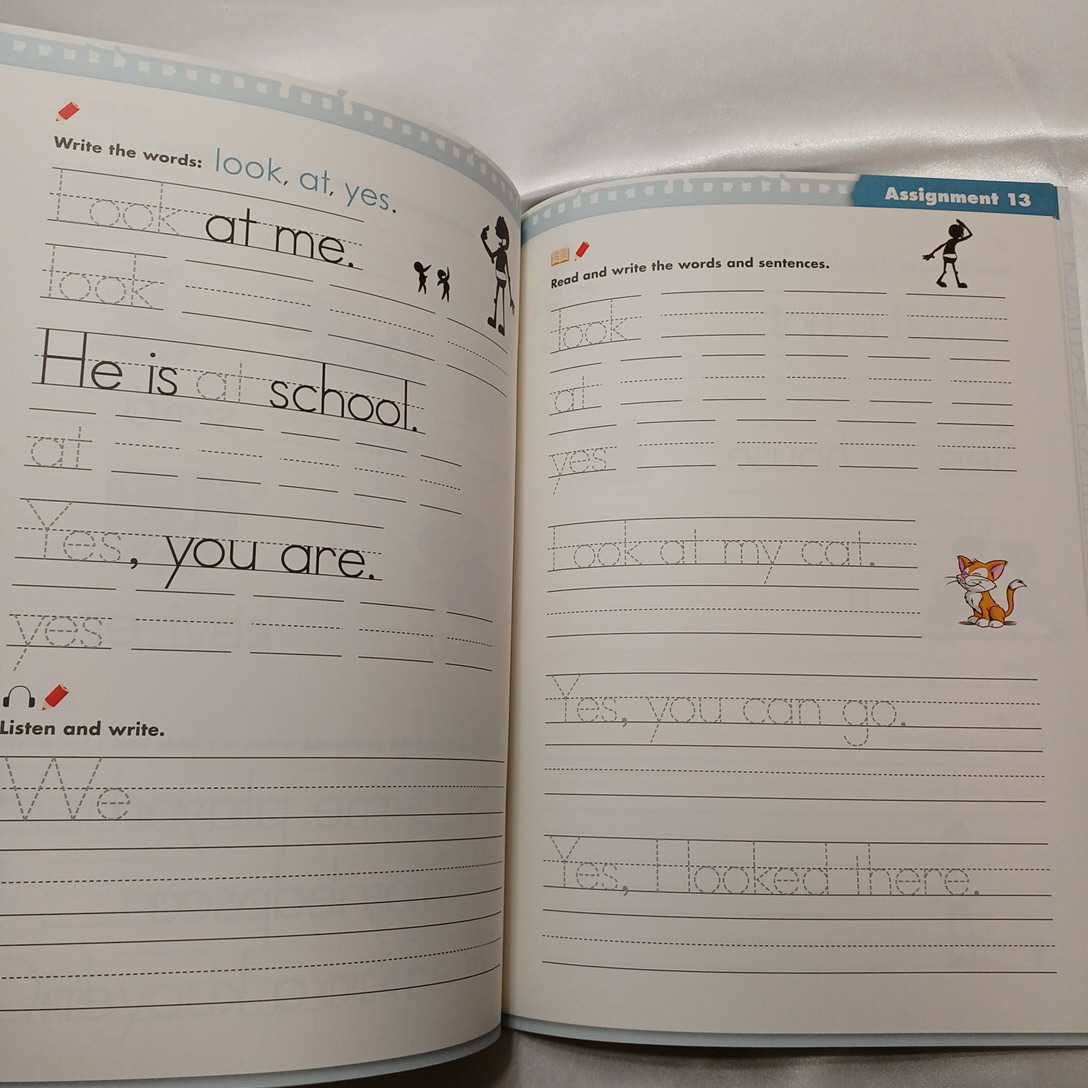 Write the words: look, at, yes.
Look at me.
look
He is at school.
at
Yes, you are.
yes
Listen and write.
We
Assignment 13
Read and write the words and sentences.
look
at
yes
Look at my cat.
Yes, you can go.
Yes, I looked there.